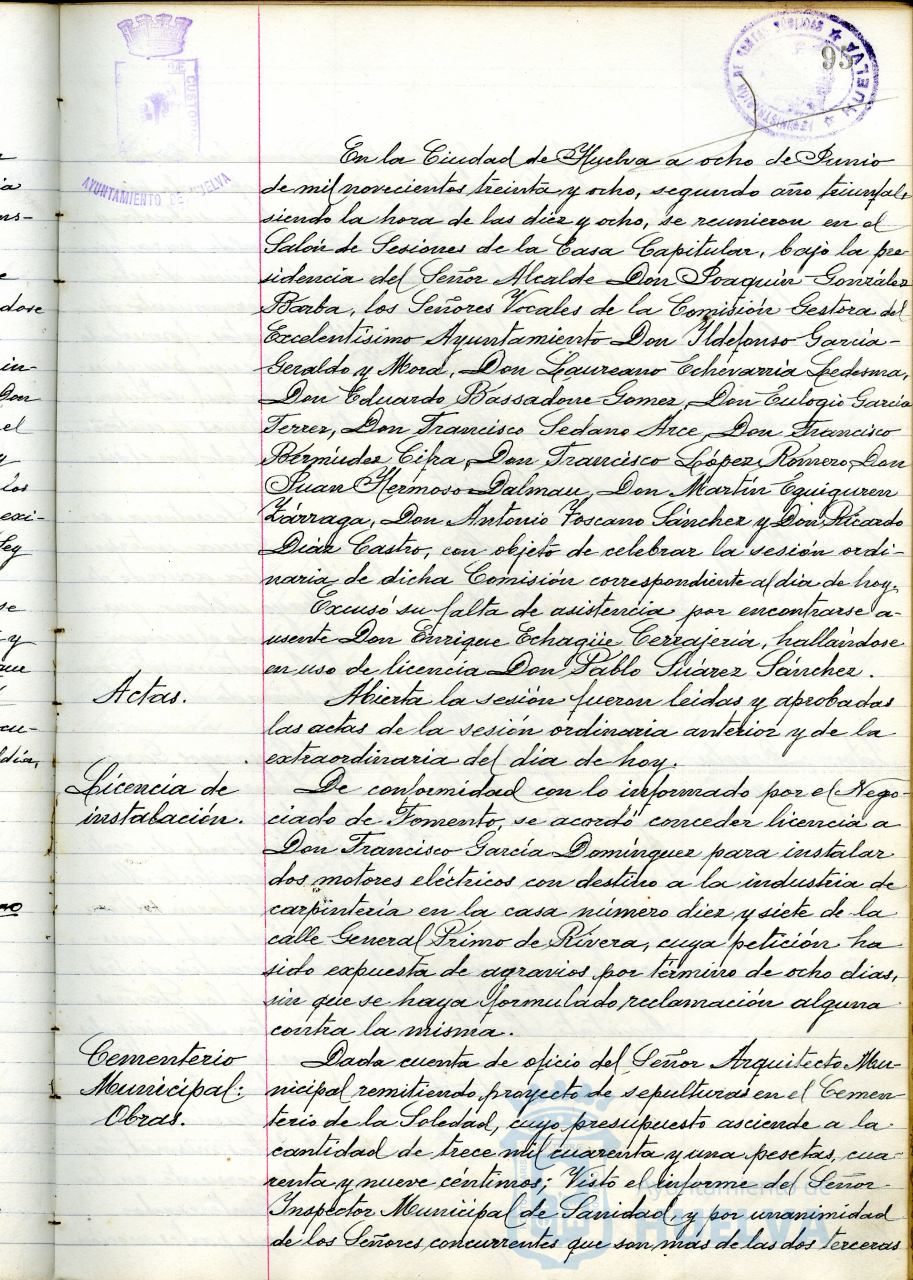 95
AYUNTAMIENTO DE HUELVA
HUELVA
En la Ciudad de Huelva a ocho de Junio
de mil novecientos treinta y ocho, segundo año triunfal,
siendo la hora de las diez y ocho, se reunieron en el
Salón de Sesiones de la Casa Capitular, bajo la pre
sidencia del Señor Alcalde Don Joaquín González
Barba, los Señores Vocales de la Comisión Gestora del
Excelentísimo Ayuntamiento Don Ildefonso García-
Geraldo y Mora, Don Laureano Echevarría Ledesma,
Don Eduardo Bassadone Gomez, Don Eulogio García
Ferrer, Don Francisco Sedano Arce, Don Francisco
Bermúdez Cifra, Don Francisco López Romero, Don
Juan Hermoso Dalmau, Don Martín Eguiguren
Zárraga, Don Antonio Toscano Sánchez y Don Ricardo
Díaz Castro, con objeto de celebrar la sesión ordi-
naria de dicha Comisión correspondiente al día de hoy.
Excusó su falta de asistencia por encontrarse a-
usente Don Enrique Echagüe Cerrajería, hallándose
en uso de licencia Don Pablo Suárez Sánchez.
Actas.
Abierta la sesión fueron leídas y aprobadas
las actas de la sesión ordinaria anterior y de la
extraordinaria del día de hoy.
Licencia de
instalación.
De conformidad con lo informado por el Nego-
ciado de Fomento, se acordó conceder licencia a
Don Francisco García Domínguez para instalar
dos motores eléctricos con destino a la industria de
carpintería en la casa número diez y siete de la
calle General Primo de Rivera, cuya petición ha
sido expuesta de agravios por término de ocho días,
sin que se haya formulado reclamación alguna
contra la misma.
Cementerio
Municipal:
Obras.
Dada cuenta de oficio del Señor Arquitecto Mu-
nicipal remitiendo proyecto de sepulturas en el Cemen-
terio de la Soledad, cuyo presupuesto asciende a la
cantidad de trece mil cuarenta y una pesetas, cua-
renta y nueve céntimos; Visto el informe del Señor
Inspector Municipal de Sanidad y por unanimidad
de los Señores concurrentes que son más de las dos terceras
Ayuntamiento de
HUELVA